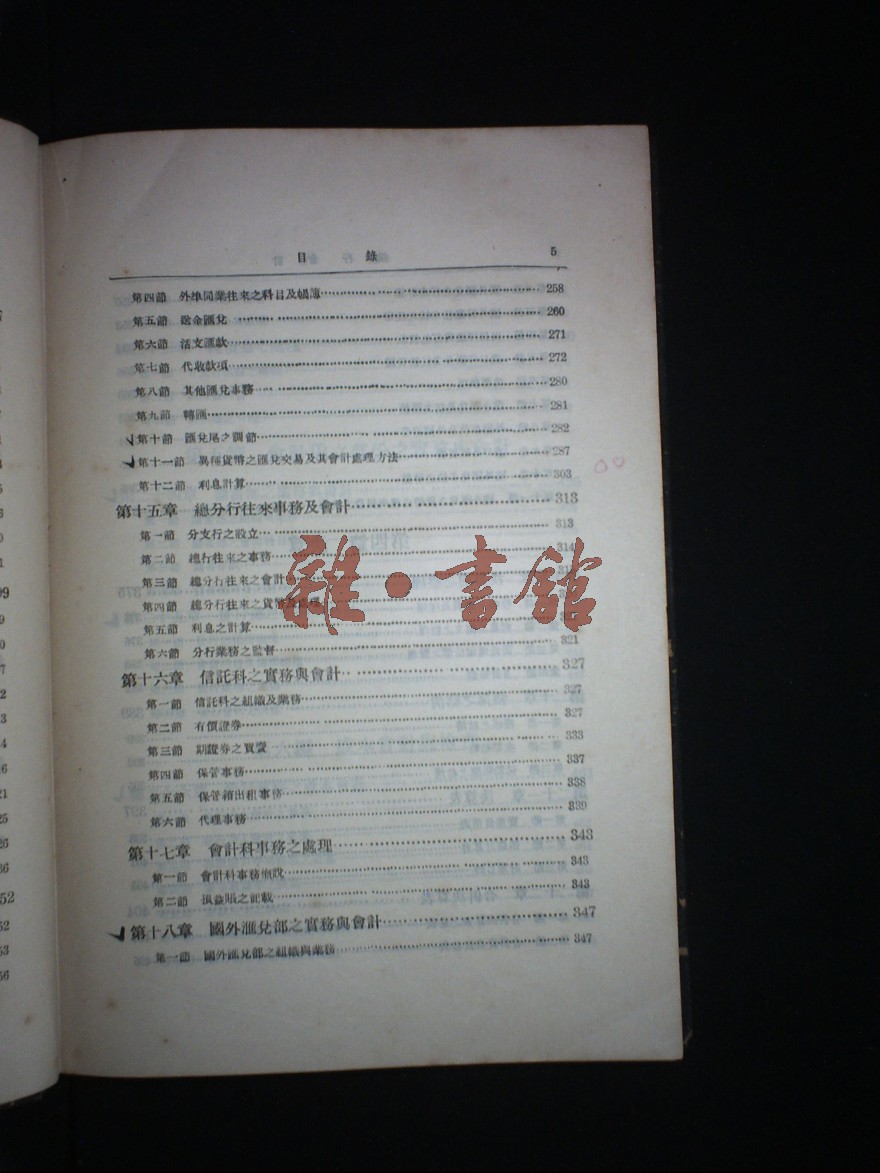 目 錄 5
第四節 外埠同業往來之科目及帳簿 258
第五節 匯兌 260
第六節 活支匯款 271
第七節 代收款項 272
第八節 其他匯兌事務 280
第九節 轉匯 281
第十節 匯兌尾之調節 282
第十一節 異種貨幣之匯兌交易及其會計處理方法 287
第十二節 利息計算 303
第十五章 總分行往來事務及會計 313
第一節 分支行之設立 313
第二節 總行往來之事務 314
第三節 總分行往來之會計
第四節 總分行往來之貨幣及處理
第五節 利息之計算
第六節 分行業務之監督 321
第十六章 信託科之實務與會計 327
第一節 信託科之組織及業務 327
第二節 有價證券 327
第三節 期證券之買賣 333
第四節 保管事務 337
第五節 保管箱出租事務 338
第六節 代理事務 339
第十七章 會計科事務之處理 343
第一節 會計科事務概說 343
第二節 損益賬之記載 343
第十八章 國外滙兌部之實務與會計 347
第一節 國外匯兌部之組織與業務 347
雜·書館
52
52
53
56